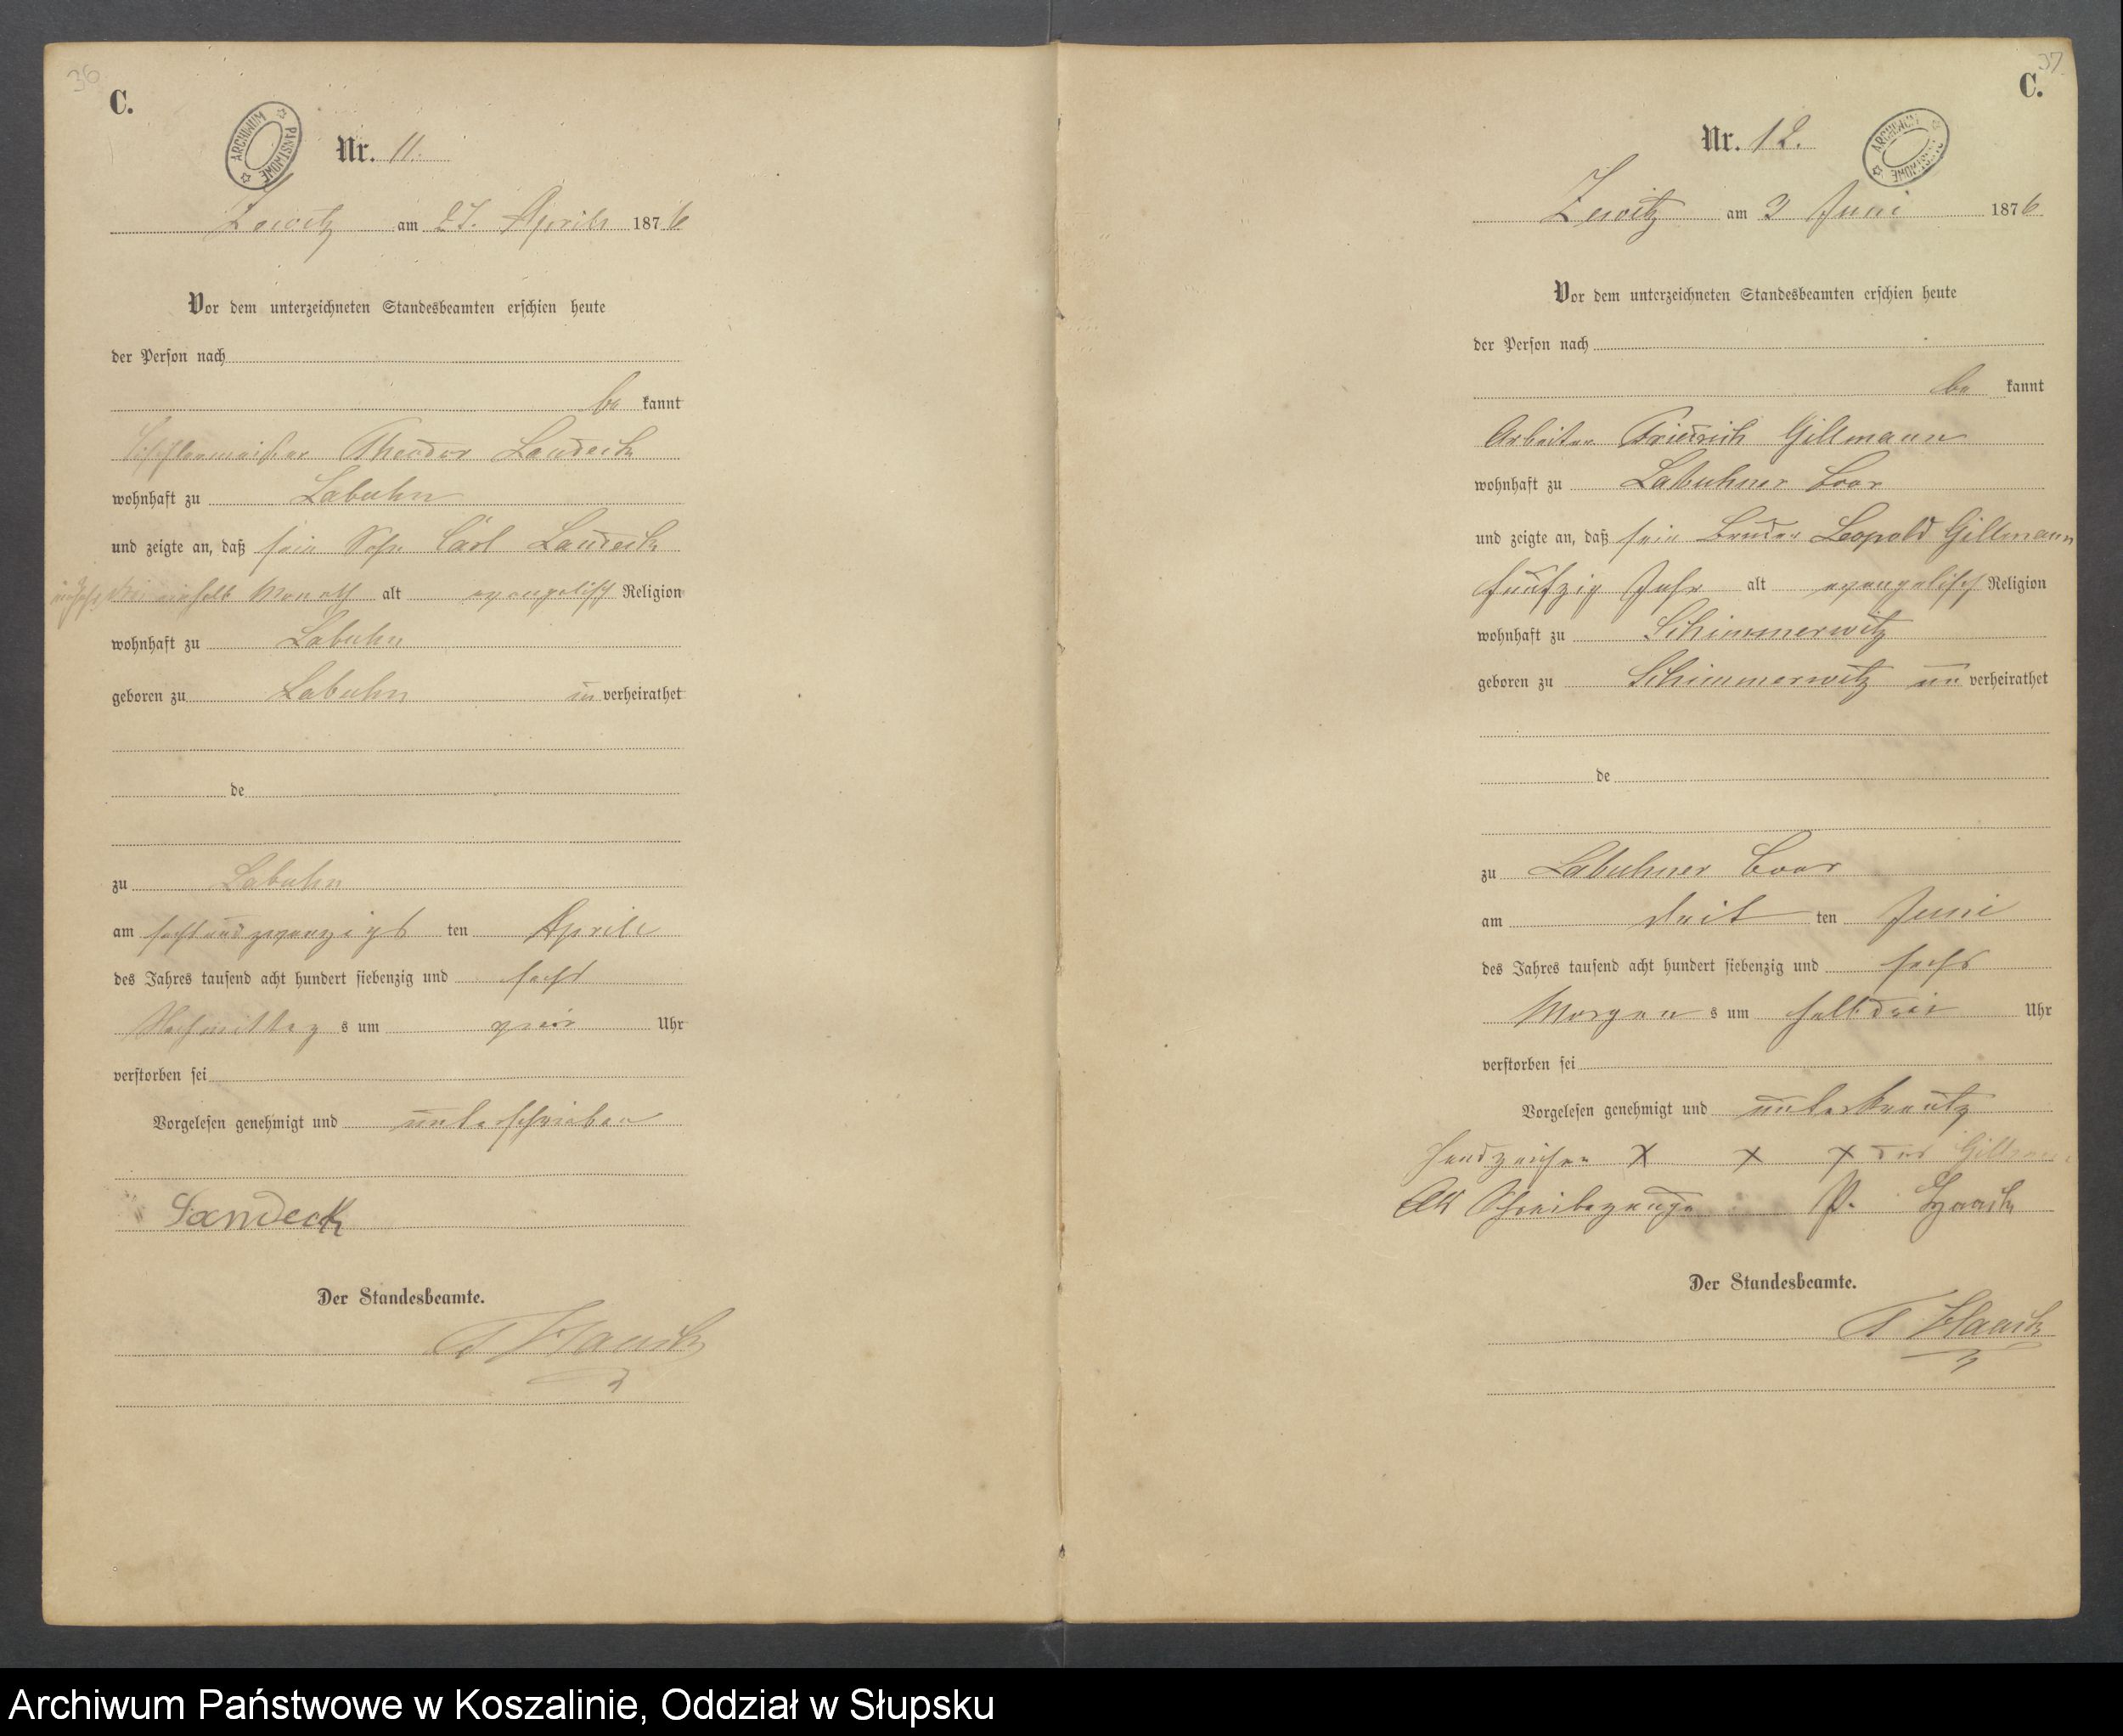 36
C.
ARCHIWUM PAŃSTWOWE
Nr. 11.
Zewitz am 27. Aprile 1876
Vor dem unterzeichneten Standesbeamten erschien heute
der Person nach
be kannt
Tischlermeister Theodor Landeck
wohnhaft zu Labuhn
und zeigte an, daß sein Sohn Carl Landeck
einhalb Monath alt evangelisch Religion
wohnhaft zu Labuhn
geboren zu Labuhn un verheirathet
de
zu Labuhn
am sechsundzwanzigs ten Aprile
des Jahres tausend acht hundert siebenzig und sechs
Nachmittag s um Uhr
verstorben sei
Vorgelesen genehmigt und unterschrieben
Landeck
Der Standesbeamte.
Haack
37
C.
ARCHIWUM PAŃSTWOWE
Nr. 12.
Zewitz am 3 Juni 1876
Vor dem unterzeichneten Standesbeamten erschien heute
der Person nach
be kannt
Arbeiter Friedrich Gillmann
wohnhaft zu Labuhner Coor
und zeigte an, daß sein Bruder Leopold Gillmann
fünfzig Jahr alt evangelisch Religion
wohnhaft zu Schimmerwitz
geboren zu Schimmerwitz un verheirathet
de
zu Labuhner Coor
am drit ten Juni
des Jahres tausend acht hundert siebenzig und sechs
Morgen s um halb drei Uhr
verstorben sei
Vorgelesen genehmigt und unterkreutz
Handzeichen X X X des Gillmann
Als Schreibezeuge P. Haack
Der Standesbeamte.
Haack
Archiwum Państwowe w Koszalinie, Oddział w Słupsku